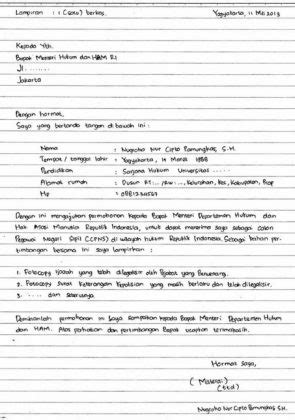 Lampiran : 1 (satu) berkas. Yogyakarta, 11 Mei 2013
Kepada Yth.
Bapak Menteri Hukum dan HAM RI
Jl. ........
Jakarta
Dengan hormat,
Saya yang bertanda tangan di bawah ini :
Nama : Nugroho Nur Cipto Pamungkas, S.H.
Tempat / tanggal lahir : Yogyakarta, 14 Maret 1988
Pendidikan : Sarjana Hukum Universitas .....
Alamat rumah : Dusun RT.../RW..., Kelurahan, Kec, Kabupaten, Prop
HP : 08812341567
Dengan ini mengajukan permohonan kepada Bapak Menteri Departemen Hukum dan
Hak Asasi Manusia Republik Indonesia, untuk dapat menerima saya sebagai Calon
Pegawai Negeri Sipil (CPNS) di wilayah hukum Republik Indonesia. Sebagai bahan per-
timbangan bersama ini saya lampirkan :
1. Fotocopy Ijazah yang telah dilegalisir oleh Pejabat yang Berwenang.
2. Fotocopy Surat Keterangan Kepolisian yang masih berlaku dan telah dilegalisir.
3. ..... dan seterusnya.
Demikianlah permohonan ini saya sampaikan kepada Bapak Menteri Departemen Hukum
dan HAM. Atas perhatian dan pertimbangan Bapak ucapkan terimakasih.
Hormat Saya,
( Materai )
(ttd)
Nugroho Nur Cipto Pamungkas S.H.